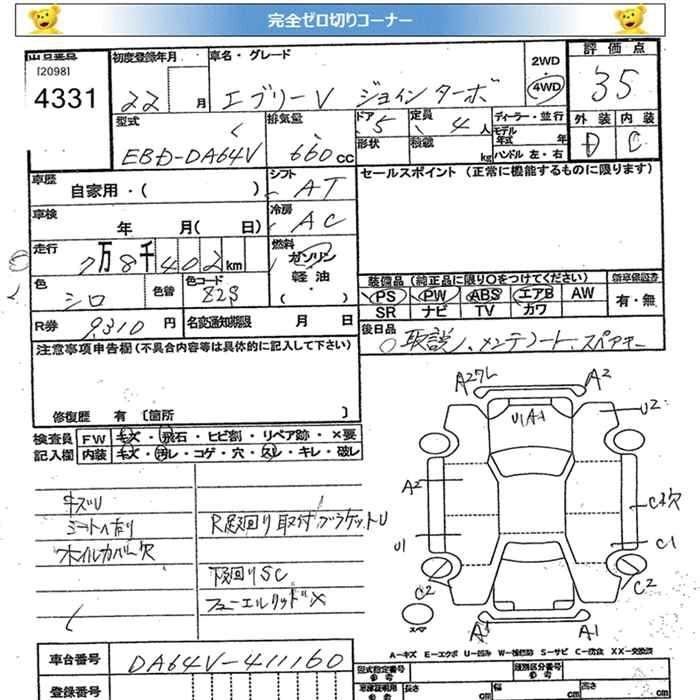 完全ゼロ切りコーナー
出品番号
[2098]
4331
初度登録年月
22 月
車名・グレード
エブリーV ジョインターボ
2WD
4WD
評価点
35
型式
EBD-DA64V
排気量
660 CC
ドア 5
定員 4 人
形状
積載 kg
ディーラー・並行
モデル年式 年
ハンドル 左・右
外装 内装
D C
車歴
自家用・( )
シフト AT
車検
年 月( 日)
冷房 AC
走行
7万8千402km
燃料
ガソリン
軽油
( )
色 シロ
色替
色コード Z2S
R券 9,310 円
名変通知期限 月 日
セールスポイント (正常に機能するものに限ります)
装備品 (純正品に限り○をつけてください)
PS PW ABS エアB AW
SR ナビ TV カワ
新車保証書
有・無
後日品
取説、メンテノート、スペアキー
注意事項申告欄(不具合内容等は具体的に記入して下さい)
修復歴 有 〔箇所 〕
検査員記入欄
FW キズ・飛石・ヒビ割・リペア跡・×要
内装 キズ・汚レ・コゲ・穴・スレ・キレ・破レ
キズU
シートヘタリ
ホイルカバー欠
R足廻り取付ブラケットU
下廻りSC
フューエルリッド×
A2ワレ
A2
U(A-1
U2
A2
U1
C2穴
C1
C2
C2
スペア
A1
A-キズ E-エクボ U-凹み W-補修跡 S-サビ C-腐食 XX-交換済
車台番号
DA64V-411160
登録番号
型式指定番号
類別区分番号
長さ cm
幅 cm
高さ cm